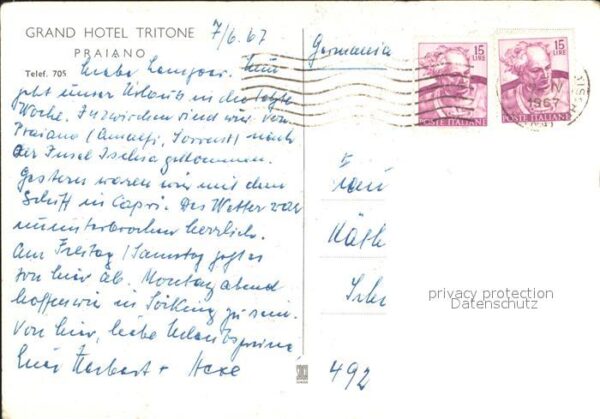 GRAND HOTEL TRITONE
PRAIANO
Telef. 705
7/6.67
Germania
15
LIRE
15
LIRE
1967
POSTE ITALIANE
POSTE ITALIANE
Liebe Nun
geht unser Urlaub in die letzte
Woche. Inzwischen sind wir von
Praiano (Amalfi, Sorrent) nach
der Insel Ischia gekommen.
Gestern waren wir mit dem
Schiff in Capri. Das Wetter war
ununterbrochen herrlich.
Am Freitag/Samstag geht es
von hier ab. Montag abend
hoffen wir in zu sein.
Von hier, liebe
Eure Herbert +
Frau
Käth
492
privacy protection
Datenschutz